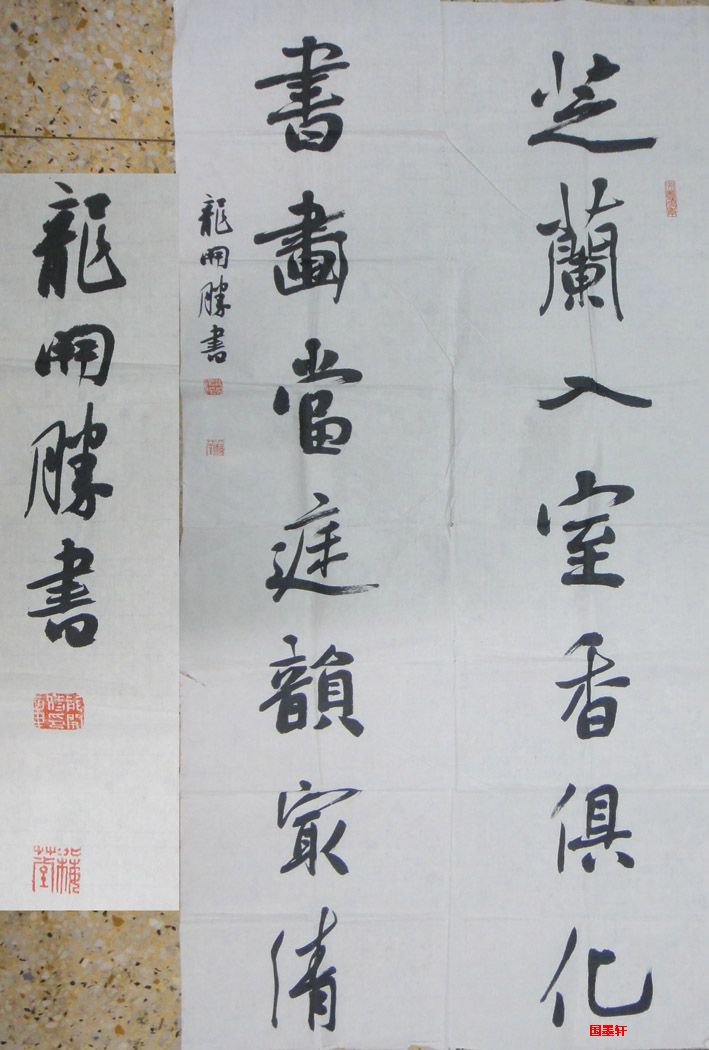 芝蘭入室香俱化
書畫當庭韻最清
龍開勝書
龍開勝書
国墨轩